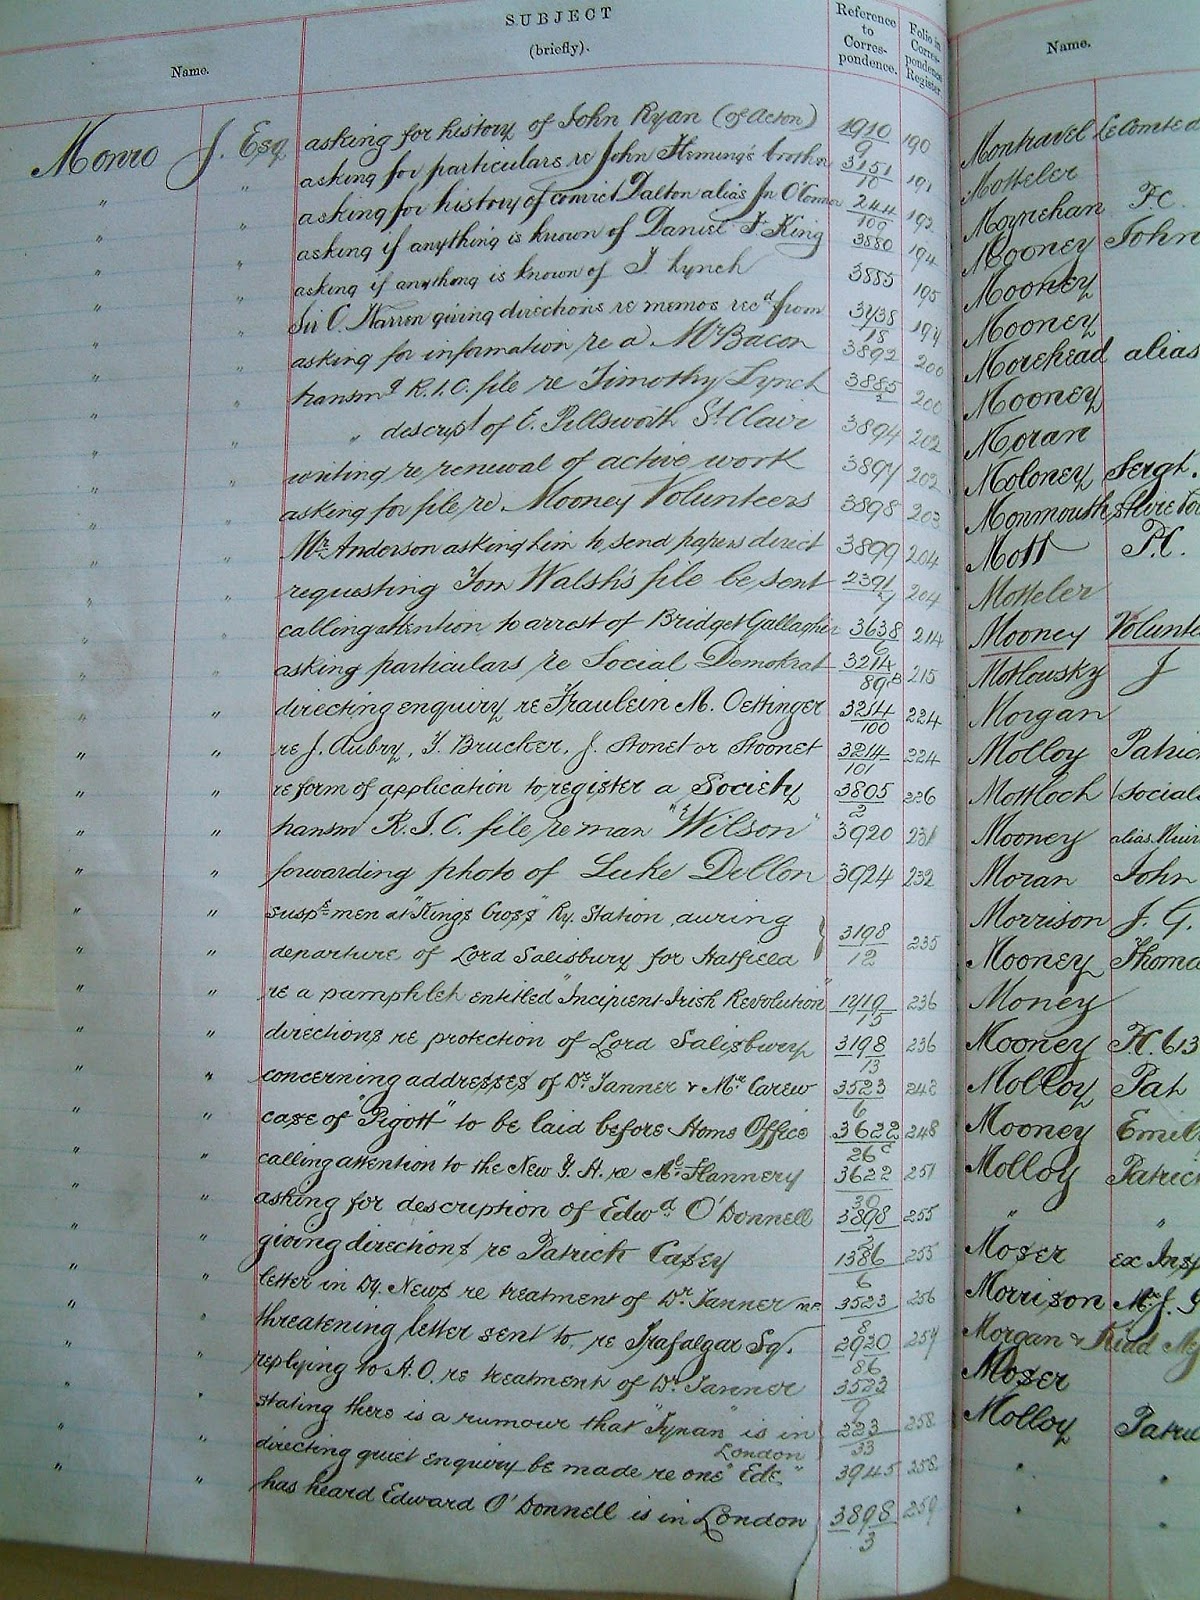 SUBJECT
(briefly).
Name.
Reference to Corres-pondence.
Folio in Corres-pondence Register
Name.
Monro J. Esq asking for history of John Ryan (of Acton) 1910/9 190
" " asking for particulars re John Fleming's brother 3151/10 191
" " asking for history of convict Dalton alias Jn O'Connor 244/109 192
" " asking if anything is known of Daniel F. King 3880 194
" " asking if anything is known of T. Lynch 3885 195
" " Sir C. Warren giving directions re memos recd from 3738/15 197
" " asking for information re a Mr Bacon 3892 200
" " transmg R.I.C. file re Timothy Lynch 3885/2 200
" " " descript of E. Pillsworth St Clair 3894 202
" " writing re renewal of active work 3897 202
" " asking for file re Mooney Volunteers 3898 203
" " Mr Anderson asking him to send papers direct 3899 204
" " requesting Tom Walsh's file be sent 2391/7 204
" " calling attention to arrest of Bridget Gallagher 3638/6 214
" " asking particulars re Social Demokrat 3214/89B 215
" " directing enquiry re Fraulein M. Oettinger 3214/100 224
" " re J. Aubry, F. Brucker, J. Stonet or Stoonet 3214/101 224
" " re form of application to register a Society 3805/2 226
" " transm R.I.C. file re man "Wilson" 3920 231
" " forwarding photo of Luke Dillon 3924 232
" " susps men at "Kings Cross" Ry. Station during
" " departure of Lord Salisbury for Hatfield 3198/12 235
" " re a pamphlet entitled "Incipient Irish Revolution" 1719/15 236
" " directions re protection of Lord Salisbury 3198/13 236
" " concerning addresses of Dr Tanner & Mr Carew 3523/6 242
" " case of "Pigott" to be laid before Home Office 3622/26c 248
" " calling attention to the New Y. H. re Mc Flannery 3622/30 251
" " asking for description of Edwd O'Donnell 3898/2 255
" " giving directions re Patrick Casey 1386/6 255
" " letter in Dy. News re treatment of Dr Tanner M.P. 3523/8 256
" " threatening letter sent to, re Trafalgar Sq. 2920/86 257
" " replying to A.O. re treatment of Dr Tanner 3523/9
" " stating there is a rumour that "Tynan" is in London 223/33 258
" " directing quiet enquiry be made re one "Ede" 3945 258
" " has heard Edward O'Donnell is in London 3898/3 259
Montravel Le Comte d
Motteler
Moynehan P.C.
Mooney John
Mooney
Mooney
Morehead alias
Mooney
Moran
Moloney Sergt.
Monmouthshire
Mott P.C.
Motteler
Mooney Volunte
Motlousky J
Morgan
Molloy Patric
Mottloch (Social
Mooney alias Muir
Moran John
Morrison J. G.
Mooney Thoma
Money
Mooney H. 613
Molloy Pat
Mooney Emil
Molloy Patrick
" "
Moser ex Insp
Morrison Mr J. G
Morgan &
Moser
Molloy Patri
" "
" "